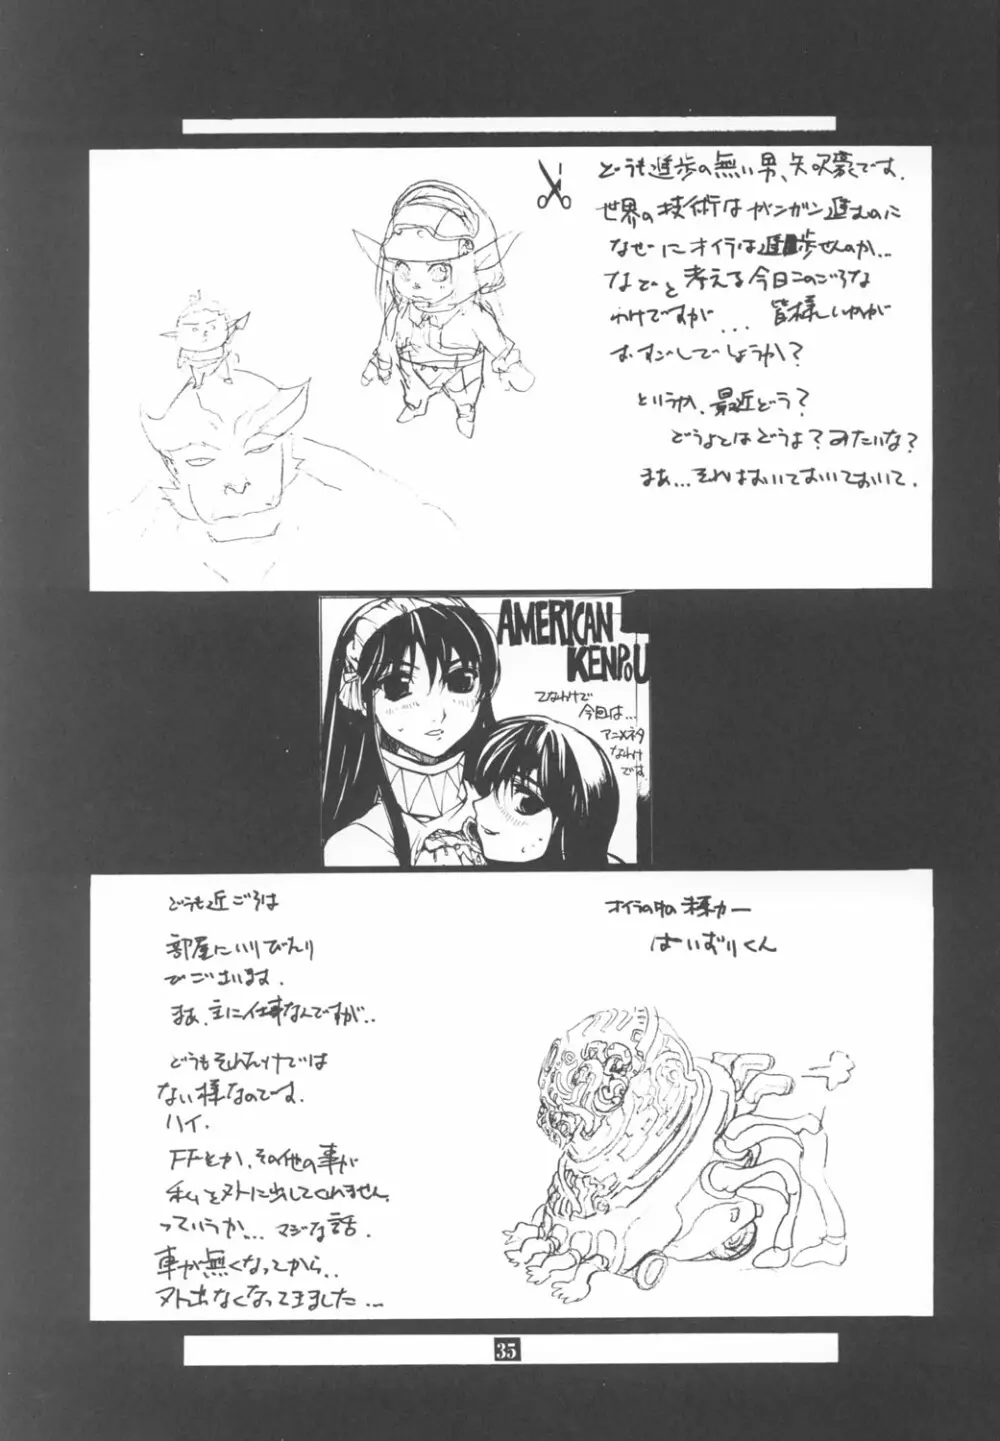 どうも進歩の無い男、矢吹豪です.
世界の技術はガンガン進むのに
なぜにオイラは進歩せんのか...
なぞと考える今日このごろな
わけですが... 皆様いかが
おすごしでしょうか?
というか、最近どう?
どうよとはどうよ?みたいな?
まぁ...それはおいておいておいて.
AMERICAN
KENPOU
てなわけで
今回は...
アニメネタ
なわけ
です.
どうも近ごろは
部屋にいりびたり
でございます.
まあ、主に仕事なんですが..
どうもそれだけでは
ない様なのです.
ハイ.
FFとか、その他の事が
私を外に出してくれません.
っていうか... マジな話.
車が無くなってから..
外出なくなってきました...
オイラの中の
はいずりくん
35